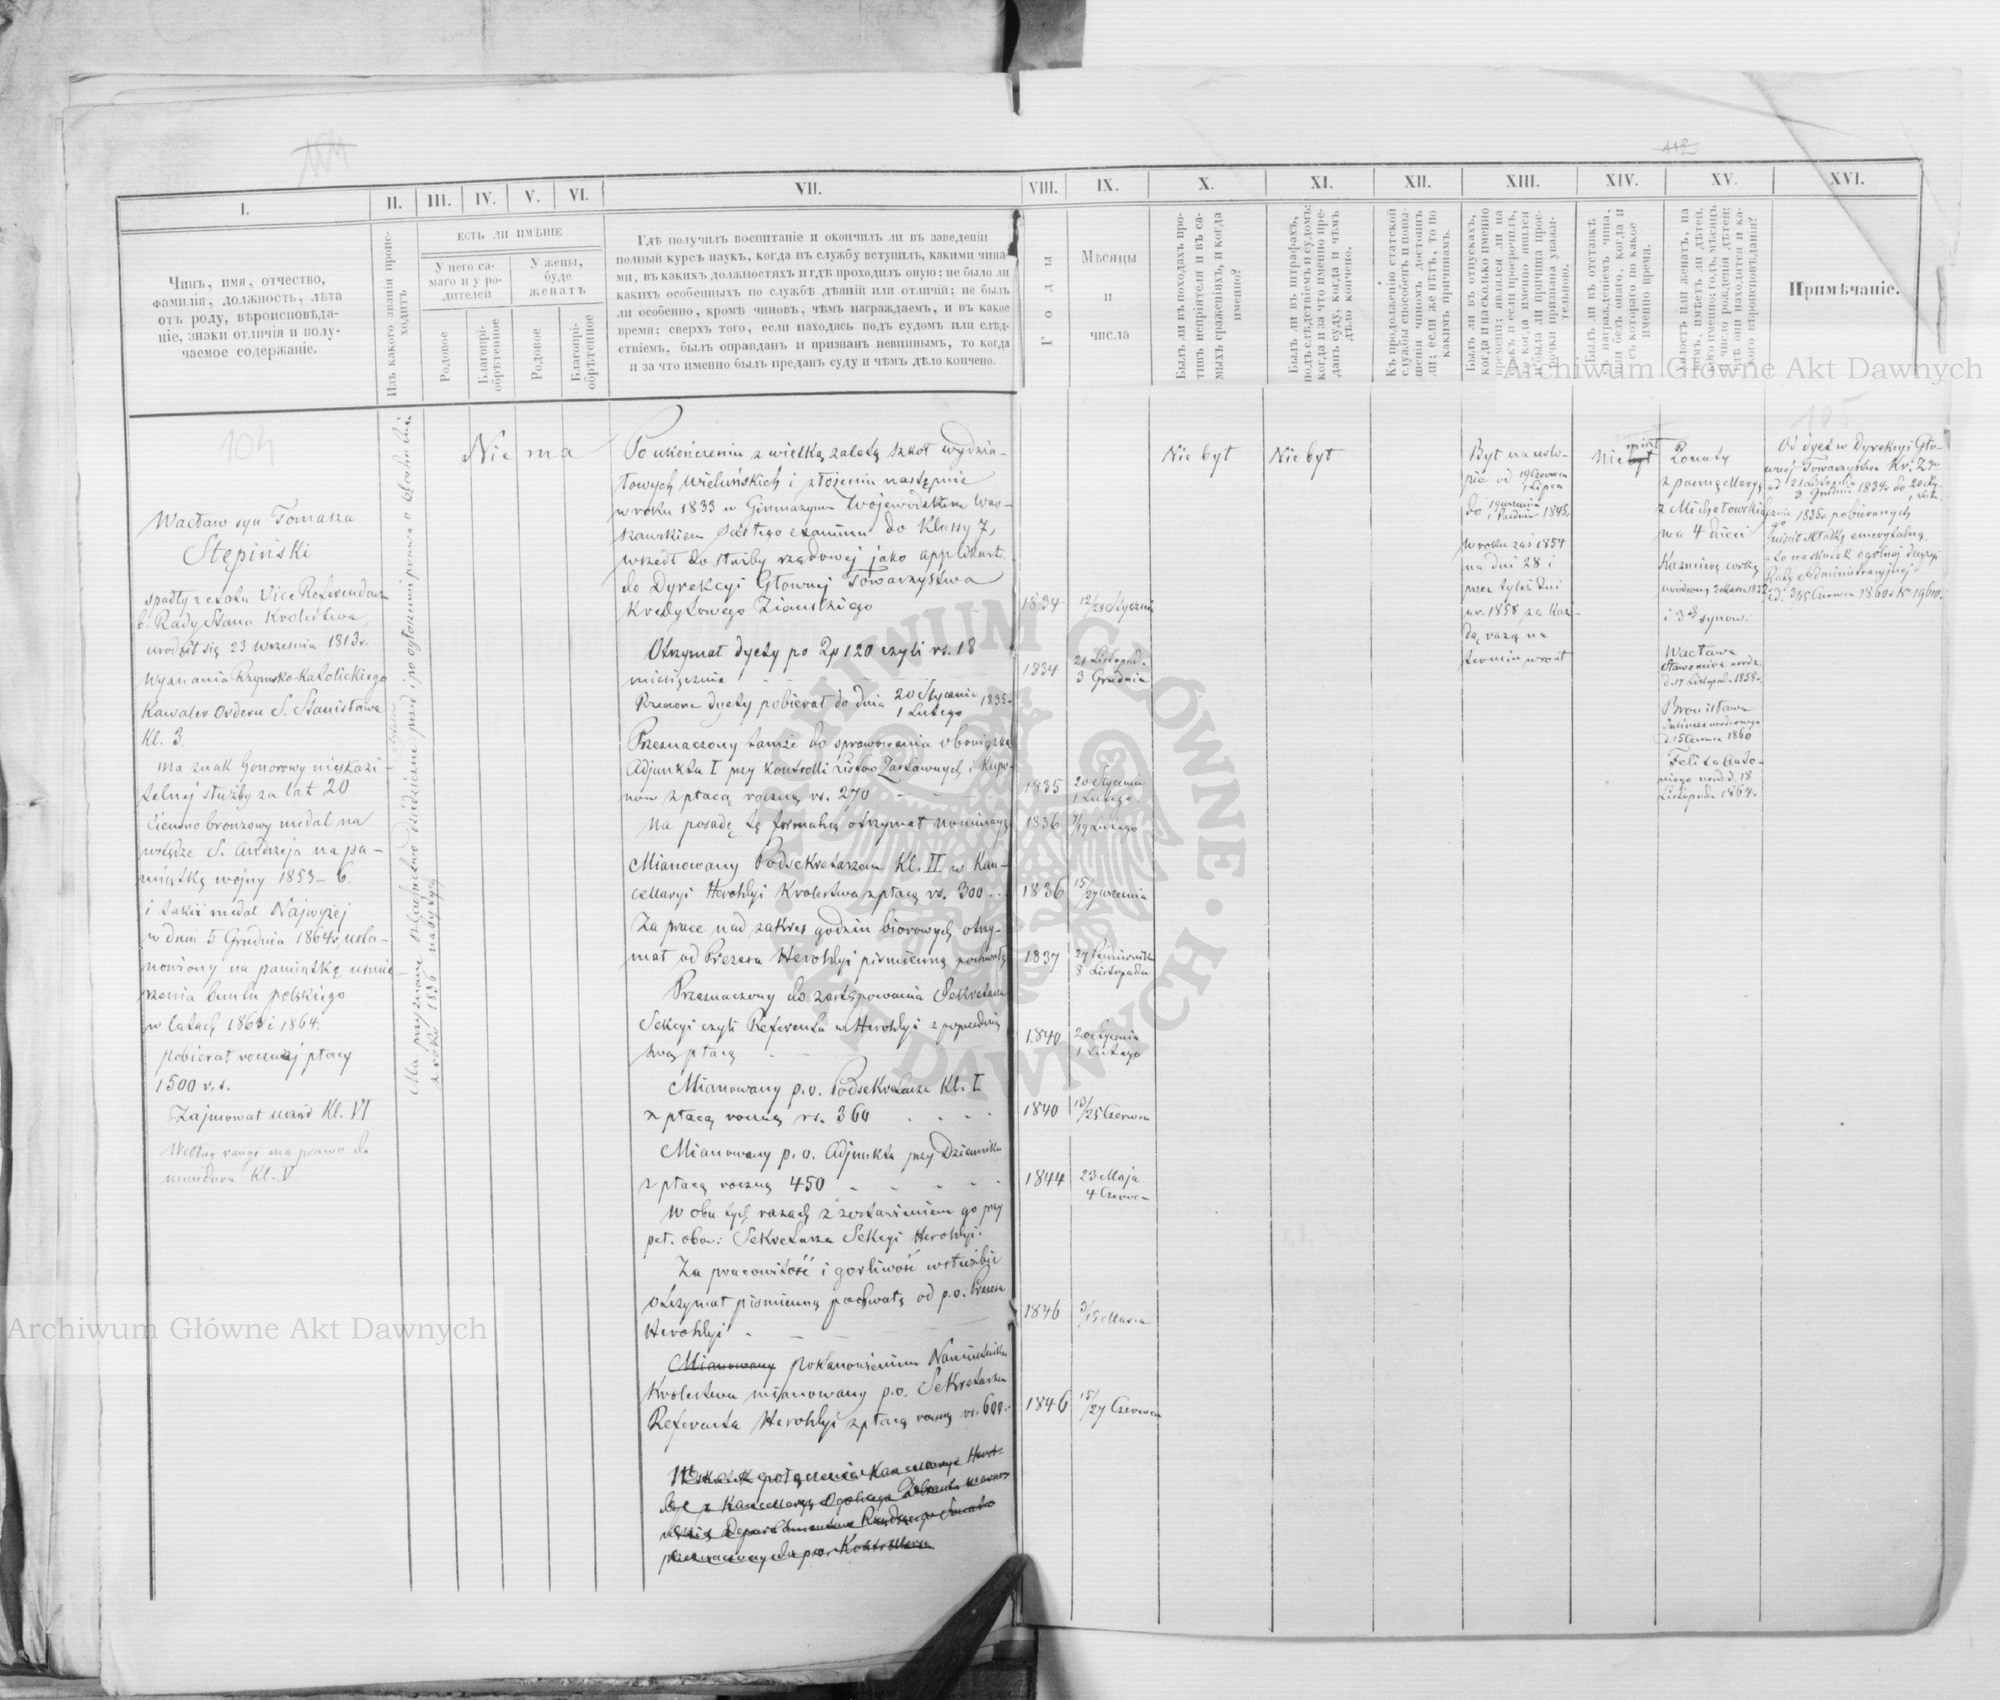 I.
II.
III.
IV.
V.
VI.
VII.
VIII.
IX.
X.
XI.
XII.
XIII.
XIV.
XV.
XVI.
Чинъ, имя, отчество,
фамилія, должность, лѣта
отъ роду, вѣроисповѣда-
ніе, знаки отличія и полу-
чаемое содержаніе.
Изъ какого званія проис-
ходитъ
ЕСТЬ ЛИ ИМѢНІЕ
У него са-
маго и у ро-
дителей
У жены,
буде
женатъ
Родовое
Благопрі-
обрѣтенное
Родовое
Благопрі-
обрѣтенное
Гдѣ получилъ воспитаніе и окончилъ ли въ заведеніи
полный курсъ наукъ, когда въ службу вступилъ, какими чина-
ми, въ какихъ должностяхъ и гдѣ проходилъ оную; не было ли
какихъ особенныхъ по службѣ дѣяній или отличій; не былъ
ли особенно, кромѣ чиновъ, чѣмъ награждаемъ, и въ какое
время; сверхъ того, если находясь подъ судомъ или слѣд-
ствіемъ, былъ оправданъ и признанъ невиннымъ, то когда
и за что именно былъ преданъ суду и чѣмъ дѣло кончено.
Годы
Мѣсяцы
и
числа
Былъ ли въ походахъ про-
тивъ непріятеля и въ са-
мыхъ сраженіяхъ, и когда
именно?
Былъ ли въ штрафахъ,
подъ слѣдствіемъ и судомъ;
когда и за что именно пре-
данъ суду, когда и чѣмъ
дѣло кончено.
Къ продолженію статской
службы способенъ и повы-
шенія чиномъ достоинъ
ли; если же нѣтъ, то по
какимъ причинамъ.
Былъ ли въ отпускахъ,
когда и на сколько именно
времени; явился ли на
срокъ и если просрочилъ,
то когда именно явился
и была ли причина прос-
рочки признана уважи-
тельною.
Былъ ли въ отставкѣ
съ награжденіемъ чина,
или безъ онаго, когда и
съ котораго по какое
именно время.
Холостъ или женатъ, на
комъ, имѣетъ ли дѣтей,
кого именно; годъ, мѣсяцъ
и число рожденія дѣтей;
гдѣ они находятся и ка-
кого вѣроисповѣданія?
Примѣчаніе.
104
Wacław syn Tomasza
Stępiński
spadły z etatu Vice Referendarz
b. Rady Stanu Królestwa,
urodził się 23 września 1813 r.
wyznania Rzymsko-Katolickiego
Kawaler Orderu S. Stanisława
Kl. 3.
ma znak honorowy nieskazi-
telnej służby za lat 20
Ciemno bronzowy medal na
wstędze S. Andrzeja na pa-
miątkę wojny 1853-6.
i takiż medal Najwyżej
w dniu 5 Grudnia 1864 r. usta-
nowiony na pamiątkę uśmie
rzenia buntu polskiego
w latach 1863 i 1864.
pobierał rocznej płacy
1500 r.s.
Zajmował urząd Kl. VI
Według rangi ma prawo do
munduru Kl. V
Ma przyznane szlachectwo dziedziczne przed i po ogłoszeniu prawa o
z roku 1836 nabyte
Nie ma
Po ukończeniu z wielką zaletą szkół wydzia-
łowych Wieluńskich i złożeniu następnie
w roku 1833 w Gimnazyum Wojewódzkim War-
szawskiem ścisłego examinu do Klassy 7,
wszedł do służby rządowej jako applikant
do Dyrekcyi Głównej Towarzystwa
Kredytowego Ziemskiego
1834
12/24 Stycznia
Otrzymał dyety po Zp 120 czyli rs. 18
miesięcznie
1834
21 Listopad.
3 Grudnia
Rzeczone dyety pobierał do dnia 20 Stycznia 1835
1 Lutego
Przeznaczony tamże do sprawowania obowiązku
Adjunkta I przy Kontrolli Listów Zastawnych i Kupo-
nów z płacą roczną rs. 270
1835
20 Stycznia
1 Lutego
Na posadę tę formalną otrzymał nominacyę
1836
7/19 Lutego
Mianowany Podsekretarzem Kl. II w Kan-
cellaryi Heroldyi Królestwa z płacą rs. 300
1836
15/27 września
Za prace nad zakres godzin biorowych otrzy-
mał od Prezesa Heroldyi piśmienną pochwałę
1837
27 Październik
8 Listopada
Przeznaczony do zastępowania Sekretarza
Sekcyi czyli Referenta w Heroldyi z poprzednią
swą płacą
1840
20 Stycznia
1 Lutego
Mianowany p.o. Podsekretarza Kl. I
z płacą roczną rs. 360
1840
13/25 Czerwca
Mianowany p.o. Adjunkta przy Dzienniku
z płacą roczną 450
1844
23 Maja
4 Czerwca
W obu tych razach z zostawieniem go przy
peł. obow: Sekretarza Sekcyi Heroldyi.
Za pracowitość i gorliwość w służbie
otrzymał piśmienną pochwałę od p.o. Prezesa
Heroldyi
1846
3/15 Marca
Mianowany postanowieniem Namiestnika
Królestwa mianowany p.o. Sekretarza
Referenta Heroldyi z płacą roczną rs. 600
1846
15/27 Czerwca
Wskutek połączenia Kancellaryi Herol-
dyi z Kancellaryą Ogólnego Zebrania
Departamentów Rządzącego Senatu
przeznaczony do p.o. Kontrollera
Nie był
Nie był
Był na urlo-
pie od 19 Czerwca
1 Lipca
do 19 września
1 Paździer 1845,
w roku zaś 1854
na dni 28 i
przez tyleż dni
w r. 1858 za każ-
dą razą na
termin wrócił
Nie był
miał
Żonaty
z panną Maryą
z Michałowskich
ma 4 dzieci
Kazimierę córkę
urodzoną 3 Marca
i 3ch synów.
Wacława
Sławomira urodz.
d. 17 Listopad. 1858 r.
Bronisława
Juliusza urodzonego
d. 15 Czerwca 1860
Felixa Anto-
niego urod. d. 18
Listopada 1864.
105
Od dyet w Dyrekcyi Głó-
wnej Towarzystwa Kr. Zgo
od 21 Listopada
3 Grudnia 1834 r. do 20 Sty-
1 Lut.
1835 r. pobieranych
uiścił składkę emerytalną,
a to na skutek ogólnej decyzyi
Rady Administracyjnej
z d. 3/15 Czerwca 1860 r. N 19610.
Archiwum Główne Akt Dawnych
Archiwum Główne Akt Dawnych
ARCHIWUM GŁÓWNE AKT DAWNYCH